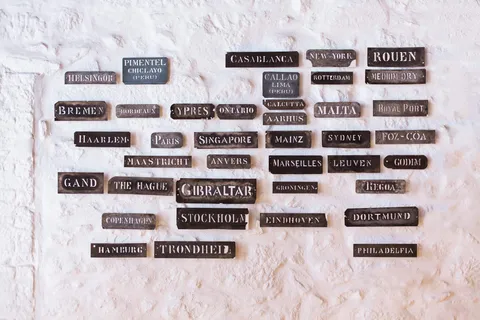 CASABLANCA
NEW-YORK
ROUEN
HELSINGOR
PIMENTEL
CHICLAYO
(PERU)
CALLAO
LIMA
(PERU)
ROTTERDAM
BREMEN
BORDEAUX
YPRES
ONTARIO
CALCUTTA
AARHUS
MALTA
ROYAL PORT
HAARLEM
PARIS
SINGAPORE
MAINZ
SYDNEY
FOZ-COA
MAASTRICHT
ANVERS
MARSEILLES
LEUVEN
GODIM
GAND
THE HAGUE
GIBRALTAR
GRONINGEN
REGOA
COPENHAGEN
STOCKHOLM
EINDHOVEN
DORTMUND
HAMBURG
TRONDHEIL
PHILADELFIA